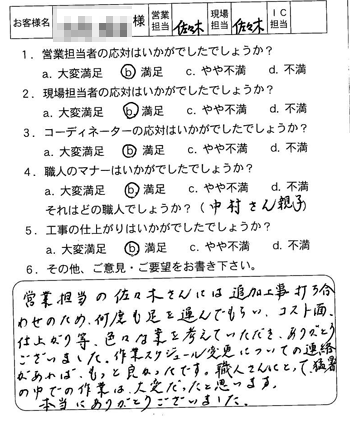 お客様名 様 営業担当 佐々木 現場担当 佐々木 IC担当
1．営業担当者の応対はいかがでしたでしょうか？
a. 大変満足 b. 満足 c. やや不満 d. 不満
2．現場担当者の応対はいかがでしたでしょうか？
a. 大変満足 b. 満足 c. やや不満 d. 不満
3．コーディネーターの応対はいかがでしたでしょうか？
a. 大変満足 b. 満足 c. やや不満 d. 不満
4．職人のマナーはいかがでしたでしょうか？
a. 大変満足 b. 満足 c. やや不満 d. 不満
それはどの職人でしょうか？（中村さん親子）
5．工事の仕上がりはいかがでしたでしょうか？
a. 大変満足 b. 満足 c. やや不満 d. 不満
6．その他、ご意見・ご要望をお書き下さい。
営業担当の佐々木さんには追加工事打ち合
わせのため、何度も足を運んでもらい、コスト面、
仕上がり等、色々な案を考えていただき、ありがとう
ございました。作業スケジュール変更についての連絡
があれば、もっと良かったです。職人さんにとって、猛暑
の中での作業は、大変だったと思います。
本当にありがとうございました。